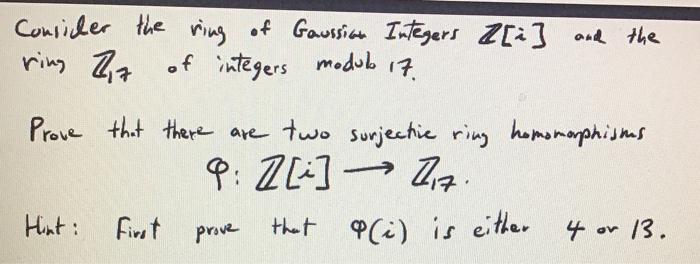 Consider the ring of Gaussian Integers ℤ[i] and the
ring ℤ₁₇ of integers modulo 17.
Prove that there are two surjective ring homomorphisms
φ: ℤ[i] → ℤ₁₇.
Hint: First prove that φ(i) is either 4 or 13.